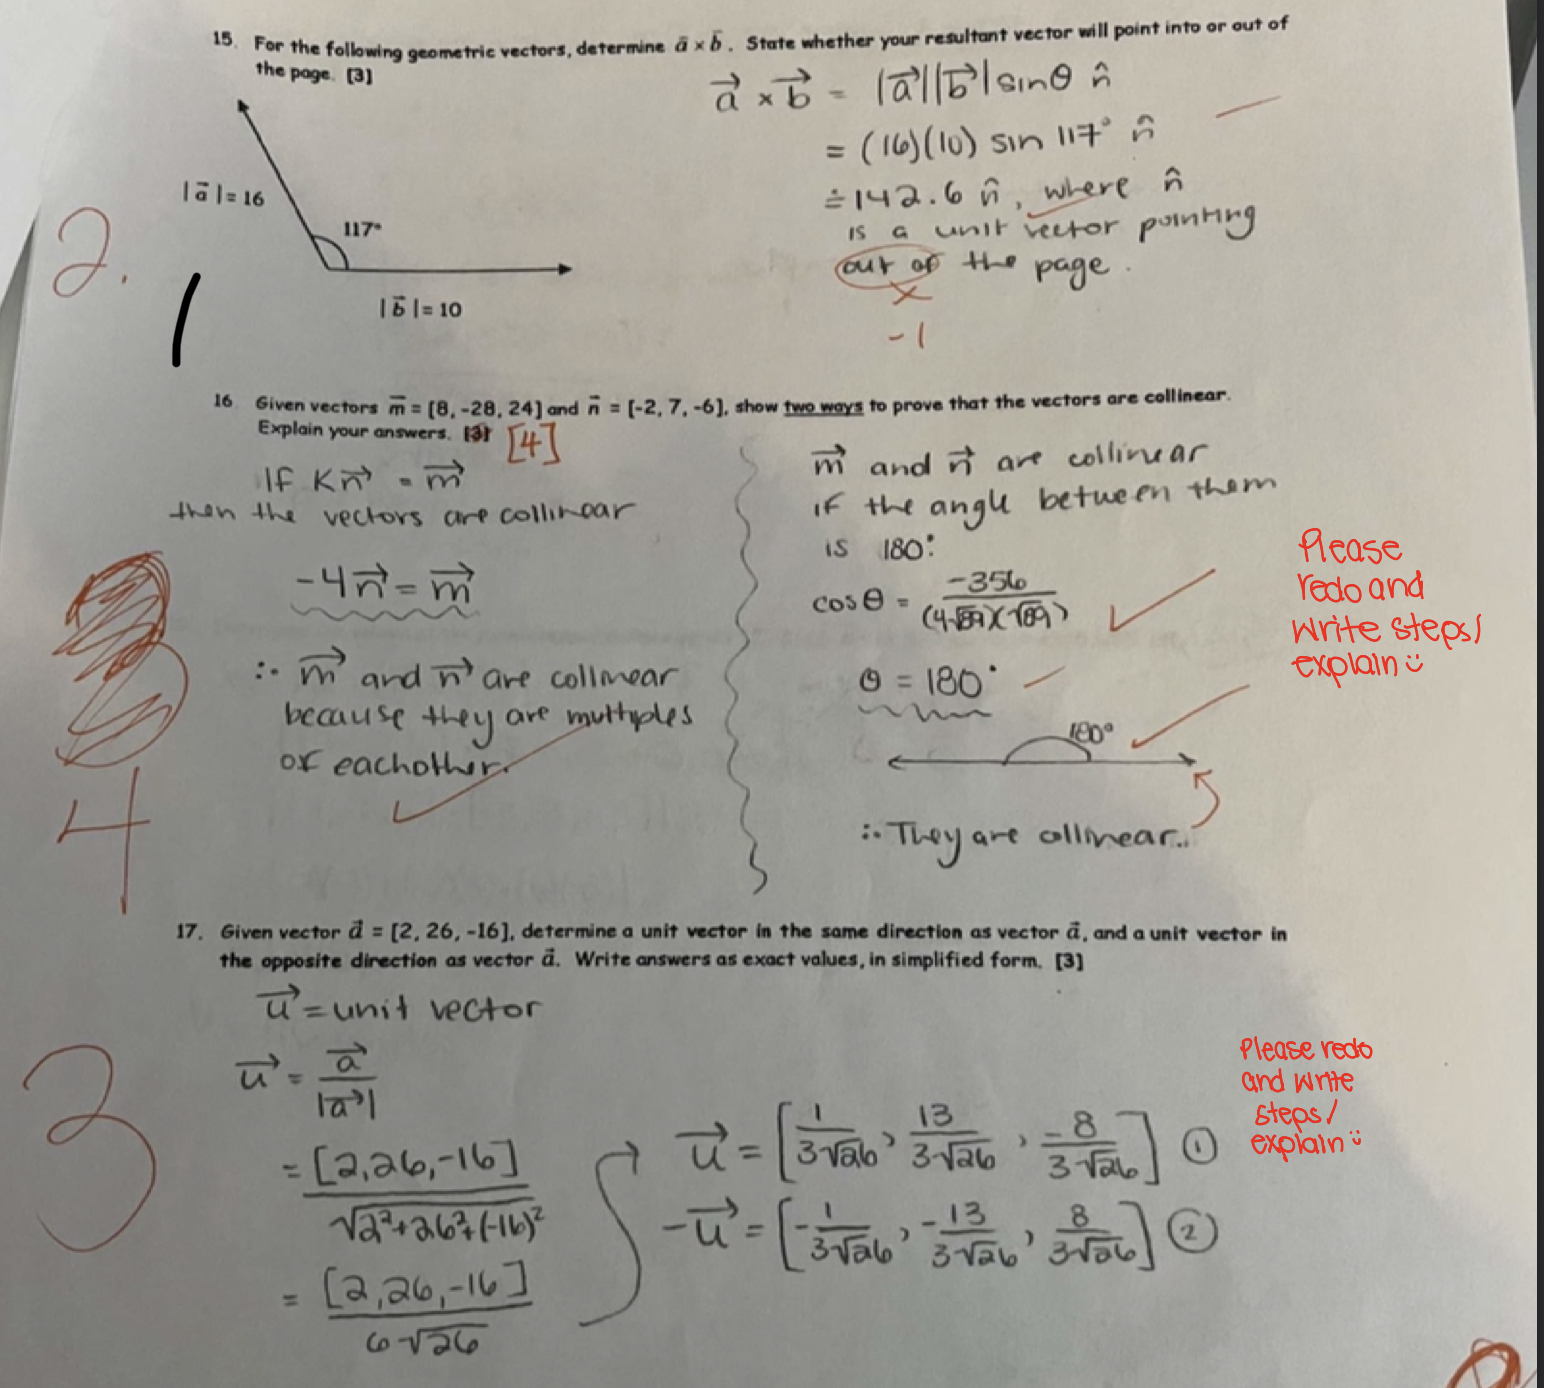 15. For the following geometric vectors, determine a⃗ × b⃗. State whether your resultant vector will point into or out of
the page. [3]
|a⃗| = 16
117°
|b⃗| = 10
a⃗ × b⃗ = |a⃗||b⃗| sinθ n̂
= (16)(10) sin 117° n̂
≐ 142.6 n̂, where n̂
is a unit vector pointing
out of the page.
×
-1
2.
1
16 Given vectors m⃗ = [8, -28, 24] and n⃗ = [-2, 7, -6], show two ways to prove that the vectors are collinear.
Explain your answers. [3] [4]
If Kn⃗ = m⃗
then the vectors are collinear
-4n⃗ = m⃗
∴ m⃗ and n⃗ are collinear
because they are multiples
of eachother.
4
m⃗ and n⃗ are collinear
if the angle between them
is 180°.
cosθ = -356/(4√89)(√89)
θ = 180°
180°
∴ They are collinear.
Please
redo and
write steps/
explain
17. Given vector a⃗ = [2, 26, -16], determine a unit vector in the same direction as vector a⃗, and a unit vector in
the opposite direction as vector a⃗. Write answers as exact values, in simplified form. [3]
3
u⃗ = unit vector
u⃗ = a⃗/|a⃗|
= [2,26,-16]/√2²+26²+(-16)²
= [2,26,-16]/6√26
u⃗ = [1/3√26, 13/3√26, -8/3√26] ①
-u⃗ = [-1/3√26, -13/3√26, 8/3√26] ②
Please redo
and write
steps/
explain